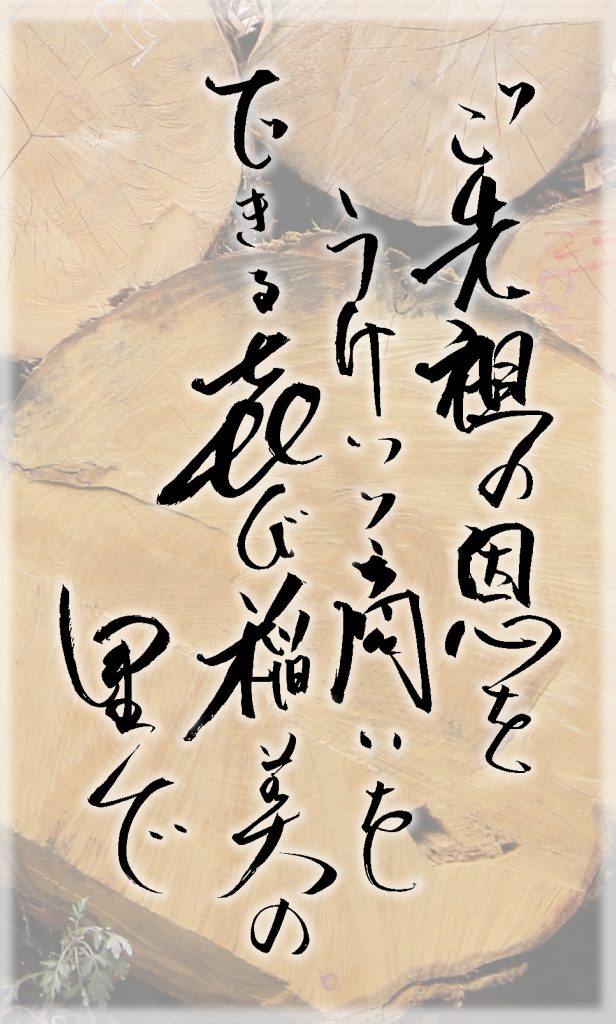 ご先祖の恩を
うけいい商いを
できる㐂び稲美の
里で